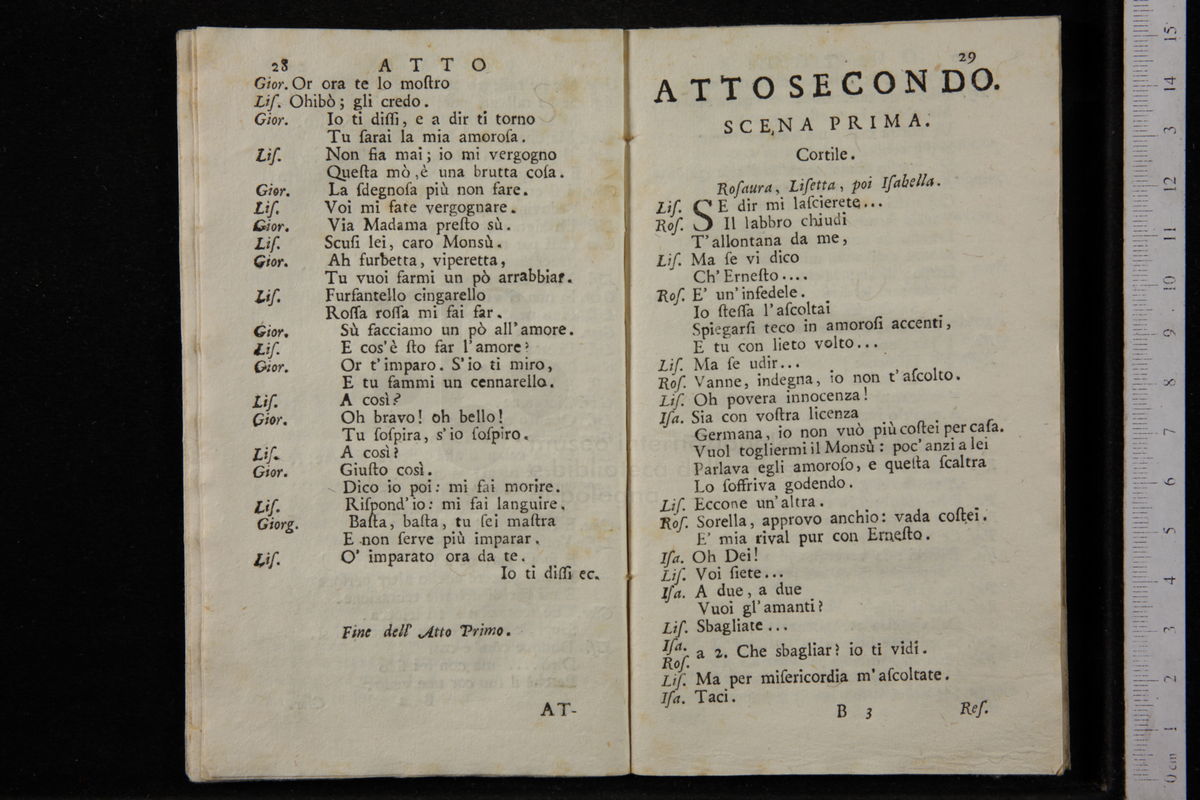 28 ATTO
Gior. Or ora te lo moſtro
Liſ. Ohibò; gli credo.
Gior. Io ti diſſi, e a dir ti torno
Tu ſarai la mia amoroſa.
Liſ. Non fia mai; io mi vergogno
Queſta mò, è una brutta coſa.
Gior. La ſdegnoſa più non fare.
Liſ. Voi mi fate vergognare.
Gior. Via Madama preſto sù.
Liſ. Scuſi lei, caro Monsù.
Gior. Ah furbetta, viperetta,
Tu vuoi farmi un pò arrabbiar.
Liſ. Furfantello cingarello
Roſſa roſſa mi fai far.
Gior. Sù facciamo un pò all'amore.
Liſ. E cos'è ſto far l'amore?
Gior. Or t'imparo. S'io ti miro,
E tu fammi un cennarello.
Liſ. A così?
Gior. Oh bravo! oh bello!
Tu ſoſpira, s'io ſoſpiro.
Liſ. A così?
Gior. Giuſto così.
Dico io poi: mi fai morire.
Liſ. Riſpond'io: mi fai languire.
Giorg. Baſta, baſta, tu ſei maſtra
E non ſerve più imparar.
Liſ. O' imparato ora da te.
Io ti diſſi ec.
Fine dell' Atto Primo.
AT-
29
ATTO SECONDO.
SCENA PRIMA.
Cortile.
Roſaura, Liſetta, poi Iſabella.
Liſ. SE dir mi laſcierete...
Roſ. Il labbro chiudi
T'allontana da me,
Liſ. Ma ſe vi dico
Ch'Erneſto....
Roſ. E' un'infedele.
Io ſteſſa l'aſcoltai
Spiegarſi teco in amoroſi accenti,
E tu con lieto volto...
Liſ. Ma ſe udir...
Roſ. Vanne, indegna, io non t'aſcolto.
Liſ. Oh povera innocenza!
Iſa. Sia con voſtra licenza
Germana, io non vuò più coſtei per caſa.
Vuol togliermi il Monsù: poc'anzi a lei
Parlava egli amoroſo, e queſta ſcaltra
Lo ſoffriva godendo.
Liſ. Eccone un'altra.
Roſ. Sorella, approvo anchio: vada coſtei.
E' mia rival pur con Erneſto.
Iſa. Oh Dei!
Liſ. Voi ſiete...
Iſa. A due, a due
Vuoi gl'amanti?
Liſ. Sbagliate...
Iſa.
Roſ. a 2. Che sbagliar? io ti vidi.
Liſ. Ma per miſericordia m'aſcoltate.
Iſa. Taci.
B 3 Roſ.